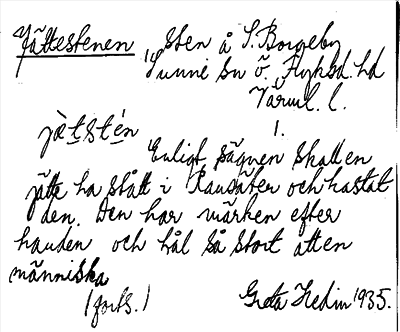 Jättestenen, sten å S. Borgeby
Sunne sn Ö. Fryksd. hd
Värml. l.
jàtsté̱n 1.
Enligt sägnen skall en
jätte ha stått i Ransäter och kastat
den. Den har märken efter
handen och hål så stort att en
människa
(forts.) Greta Hedin 1935.